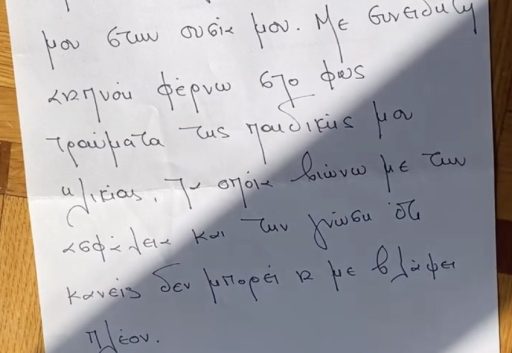 μου στην ουσία μου. Με συνειδητή
αναπνοή φέρνω στο φως
τραύματα της παιδικής μου
ηλικίας, τα οποία βιώνω με την
ασφάλεια και την γνώση ότι
κανείς δεν μπορεί να με βλάψει
πλέον.